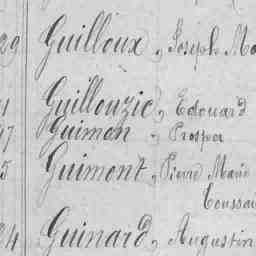 29 Guilloux, Joseph Ma
1 Guillouzic, Edouard
7 Guimon, Prosper
5 Guimont, Pierre Marie
Toussai
24 Guinard, Augustin